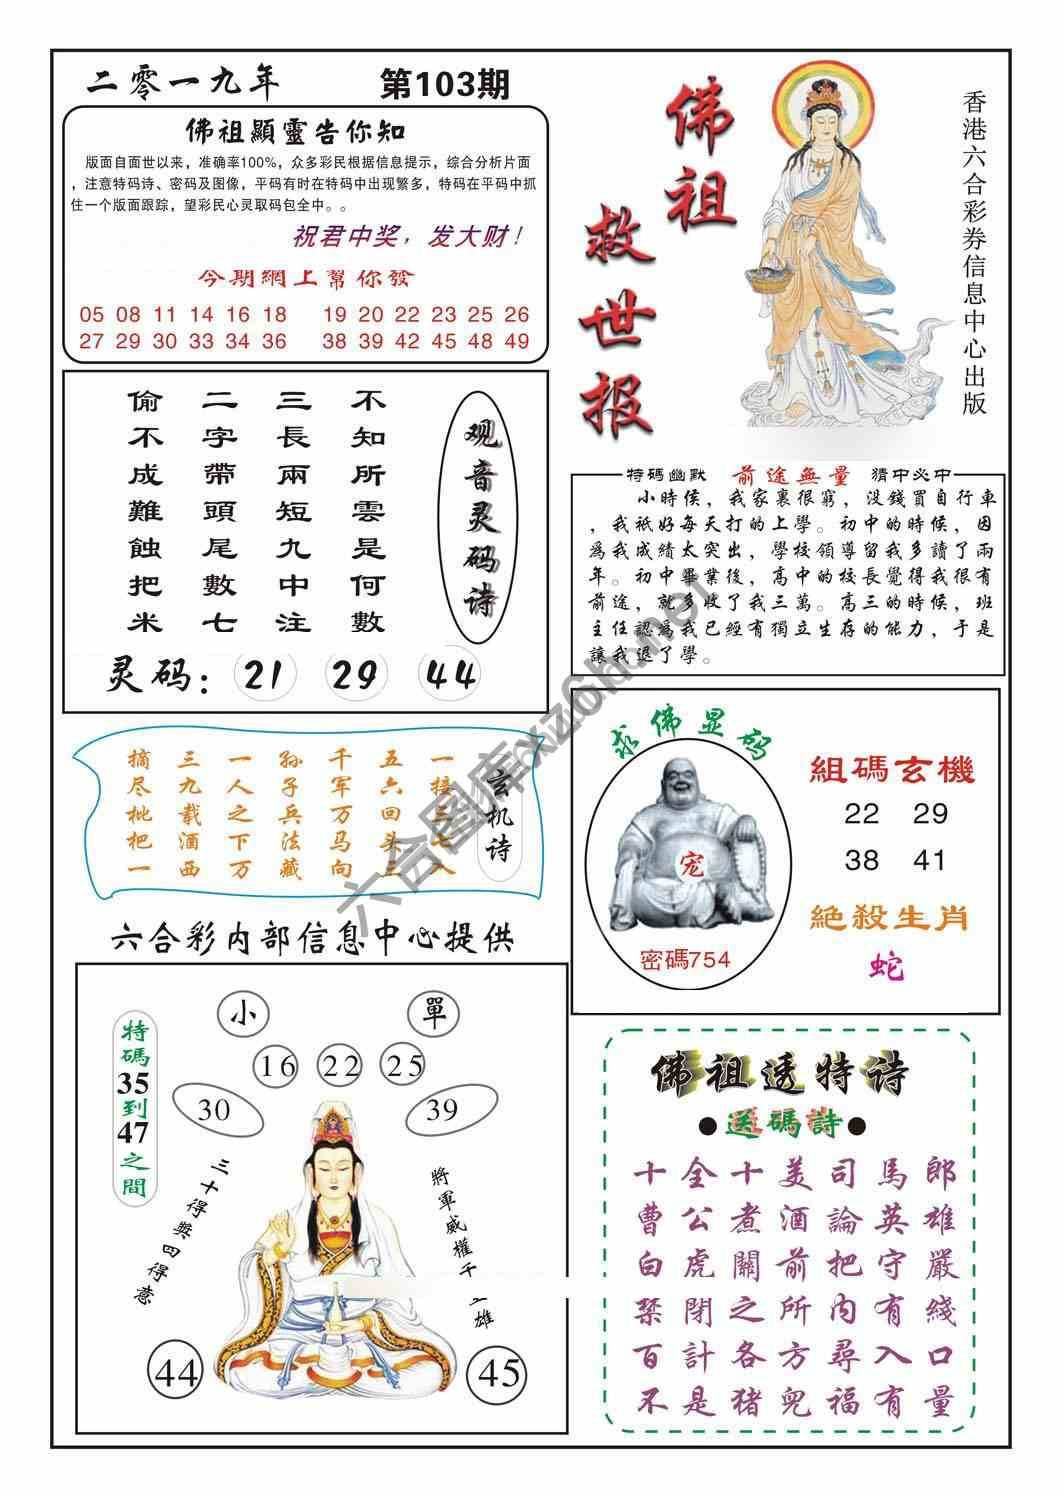 二零一九年 第103期
佛祖顯靈告你知
版面自面世以来，准确率100%，众多彩民根据信息提示，综合分析片面
，注意特码诗、密码及图像，平码有时在特码中出现繁多，特码在平码中抓
住一个版面跟踪，望彩民心灵取码包全中。。
祝君中奖，发大财！
今期網上幫你發
05 08 11 14 16 18 19 20 22 23 25 26
27 29 30 33 34 36 38 39 41 45 48 49
佛祖
救世报
香港六合彩券信息中心出版
观音灵码诗
不知所雲是何數
三長兩短九中注
二字帶頭尾數七
偷不成難蝕把米
灵码：21 29 44
特碼幽默 前途無量 猜中必中
小時侯，我家裏很窮，没錢買自行車
，我衹好每天打的上學。初中的時候，因
為我成績太突出，學校領導留我多讀了兩
年。初中畢業後，高中的校長覺得我很有
前途，就多收了我三萬。高三的時候，班
主任認為我已經有獨立生存的能力，于是
讓我退了學。
玄机诗
一接三七入
五六回头三
千军万马向
孙子兵法藏
一人之下万
三九载酒西
摘尽枇把一
求佛显码
宠
密碼754
組碼玄機
22 29
38 41
絕殺生肖
蛇
六合彩内部信息中心提供
小 單
16 22 25
30 39
特碼35到47之間
三十得獎四得意
將軍威權千
雄
44 45
佛祖透特诗
●送碼詩●
十全十美司馬郎
曹公煮酒論英雄
白虎關前把守嚴
禁閉之所内有綫
百計各方尋入口
不是猪兜福有量
六合图库xz6h.net